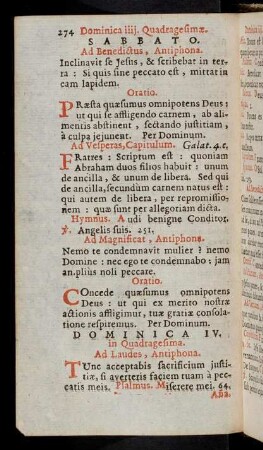 274 Dominica iiij. Quadragesimæ.
SABBATO.
Ad Benedictus, Antiphona.
Inclinavit se Jesus, & scribebat in ter-
ra : Si quis sine peccato est, mittat in
eam lapidem.
Oratio.
PRæsta quæsumus omnipotens Deus :
ut qui se affligendo carnem, ab ali-
mentis abstinent, sectando justitiam,
à culpa jejunent. Per Dominum.
Ad Vesperas, Capitulum. Galat. 4. c.
FRatres : Scriptum est : quoniam
Abraham duos filios habuit : unum
de ancilla, & unum de libera. Sed qui
de ancilla, secundùm carnem natus est :
qui autem de libera, per repromissio-
nem : quæ sunt per allegoriam dicta.
Hymnus. Audi benigne Conditor.
℣. Angelis suis. 251.
Ad Magnificat, Antiphona.
Nemo te condemnavit mulier ? nemo
Domine : nec ego te condemnabo : jam
amplius noli peccare.
Oratio.
COncede quæsumus omnipotens
Deus : ut qui ex merito nostræ
actionis affligimur, tuæ gratiæ consola-
tione respiremus. Per Dominum.
DOMINICA IV.
in Quadragesima.
Ad Laudes, Antiphona.
TUnc acceptabis sacrificium justi-
tiæ, si averteris faciem tuam à pec-
catis meis. Psalmus. Miserere mei. 64.
Aña.